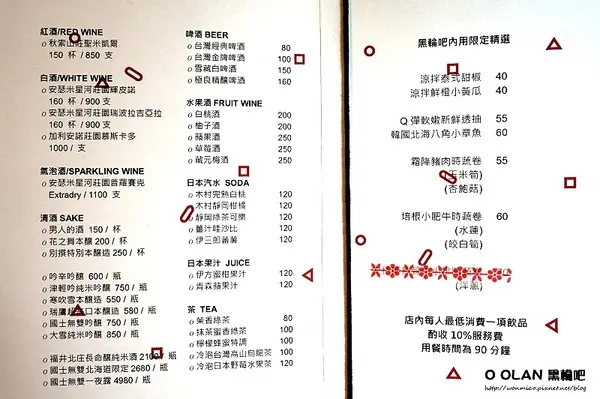 紅酒/RED WINE
o 秋索山莊聖米凱爾
150 杯 / 850 支
白酒/WHITE WINE
o 安瑟米星河莊園輝皮諾
160 杯 / 900 支
o 安瑟米星河莊園瑞波拉吉亞拉
160 杯 / 900 支
o 加利安諾莊園慕斯卡多
1000 / 支
氣泡酒/SPARKLING WINE
o 安瑟米星河莊園普羅賽克
Extradry / 1100 支
清酒 SAKE
o 男人的酒 150 / 杯
o 花之舞本釀 200 / 杯
o 別撰特別本釀造 250 / 杯
o 吟辛吟釀 600 / 瓶
o 津輕吟純米吟釀 750 / 瓶
o 寒吹雪本釀造 550 / 瓶
o 瑞鷹超 口本釀造 580 / 瓶
o 國士無雙吟釀 750 / 瓶
o 大雪純米吟釀 850 / 瓶
o 福井北庄長命釀純米酒 2100 / 瓶
o 國士無雙北海道限定 2680 / 瓶
o 國士無雙一夜露 4980 / 瓶
啤酒 BEER
o 台灣經典啤酒 80
o 台灣金牌啤酒 100
o 雪藏白啤酒 150
o 極良精釀啤酒 160
水果酒 FRUIT WINE
o 白桃酒 200
o 柚子酒 200
o 蘋果酒 250
o 草莓酒 250
o 蔵元梅酒 250
日本汽水 SODA
o 木村完熟白桃 120
o 木村靜岡柑橘 120
o 靜岡綠茶可樂 120
o 薑汁哇沙比 120
o 伊三郎蕃薯 120
日本果汁 JUICE
o 伊方蜜柑果汁 120
o 青森蘋果汁 120
茶 TEA
o 茉香綠茶 80
o 抹茶蜜香綠茶 100
o 檸檬蜂蜜特調 100
o 冷泡台灣高山烏龍茶 100
o 冷泡日本野莓水果茶 120
黑輪吧內用限定精選
涼拌泰式甜椒 40
涼拌鮮橙小黃瓜 40
Q 彈軟嫩新鮮透抽 55
韓國北海八角小章魚 60
霜降豬肉時蔬卷 55
(玉米筍)
(杏鮑菇)
培根小肥牛時蔬卷 60
(水蓮)
(皎白筍)
(洋蔥)
店內每人最低消費一項飲品
酌收 10%服務費
用餐時間為 90 分鐘
O OLAN 黑輪吧
http://wonmiao.pixnet.net/blog